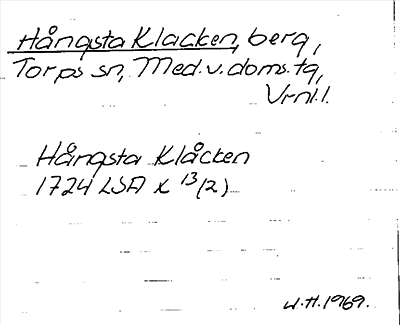 Hångsta Klacken, berg,
Torps sn, Med. v. doms. tg,
Vrnl. l.
Hångsta Klåcken
1724 LSA X 13/(2)
W.H. 1969.